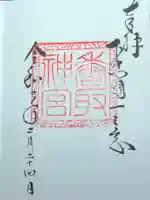 奉拝
下総国一之宮
香取
神宮
令和 年二月二十四日